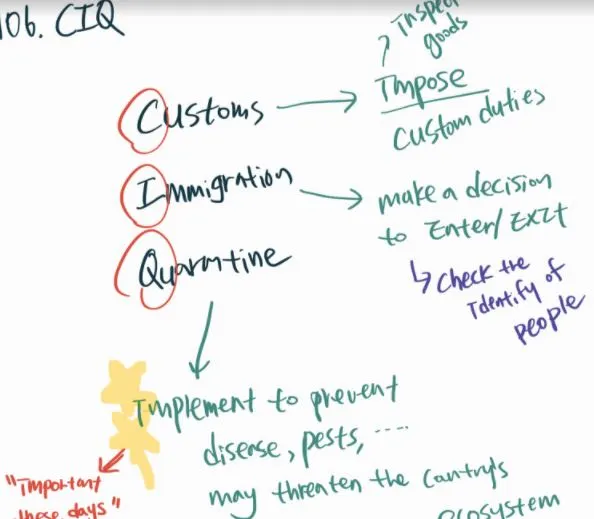 106. CIQ
Inspect
goods
Customs
Impose
custom duties
Immigration
make a decision
to Enter/Exit
Quarantine
Check the
Identify of
people
Implement to prevent
disease, pests, ....
may threaten the country's
ecosystem
"Important
these days"